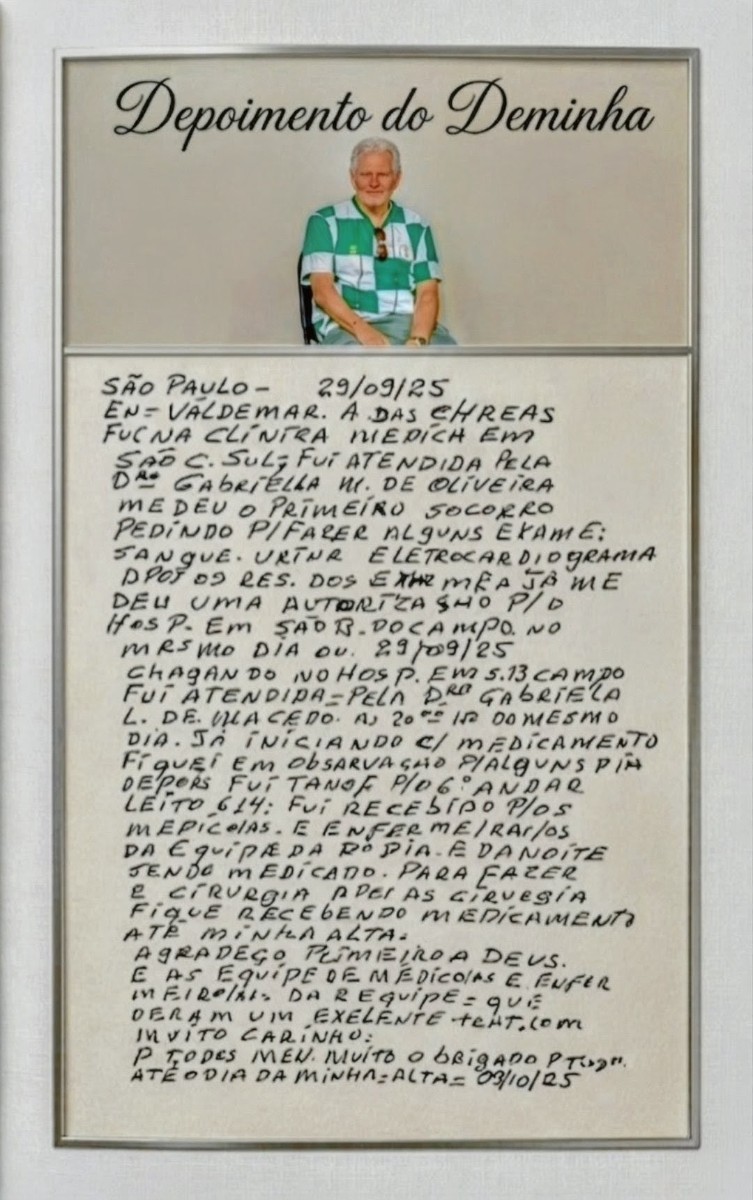 Depoimento do Deminha
SÃO PAULO - 29/09/25
EN= VALDEMAR. A DAS CHREAS
FUCNA CLÍNTRA MEDICH EM
SAO C. SUL; FUÍ ATENDIDA PELA
DRA GABRIELLA M. DE OLIVEIRA
ME DEU O PRIMEIRO SOCORRO
PEDINDO P/FAZER ALGUNS EXAME:
SANGUE. URINR ELETROCARDIOGRAMA
DPOT OS RES. DOS JÁ ME
DEU UMA P/O
HOSP. EM SÃO B. DO CAMPO. NO
MRSMO DIA OU. 29/09/25
CHAGANDO NO HOSP. EM S.13 CAMPO
FUÍ ATENDIDA=PELA DRA GABRIELA
L. DE. MACEDO. DO MESMO
DIA. JÁ INICIANDO C/ MEDICAMENTO
FIQUEI EM OBSARVAÇÃO P/ALGUNS DIA
DEPORS FUI TANOF P/O 6º ANDAR
LEITO 614: FUI RECEBIDO P/OS
MEDICO/AS. E ENFERME/RAR/OS
DA EQUIPÆ DA DIA. E DA NOITE
SENDO MEDICADO. PARA FAZER
E CIRURGIA APEI AS CIRVEGIA
FIQUE RECEBENDO MEDICAMENTO
ATÉ MINHA ALTA:
AGRADEÇO PLIMEIRO A DEUS.
E AS EQUIPE DE MÉDICO/AS E ENFER
MEIRO/AS. DA REQUIPE= QUE
DERAM UM EXELENTE
MUITO CARINHO:
P TODES MEU MUITO OBRIGADO
ATÉ O DIA DA MINHA=ALTA= 09/10/25